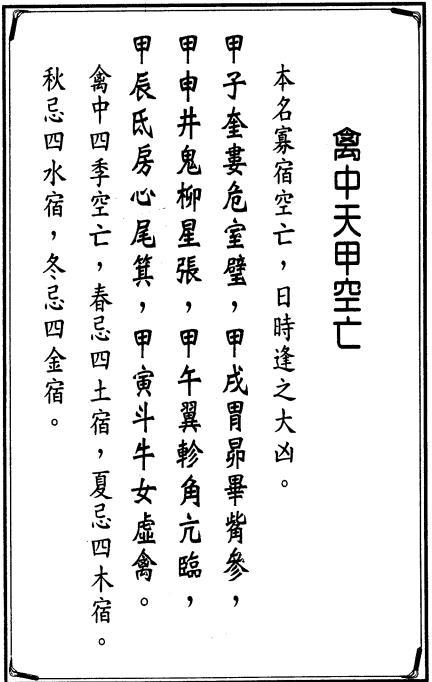 禽中天甲空亡
本名寡宿空亡，日時逢之大凶。
甲子奎婁危室壁，甲戌胃昴畢觜參，
甲申井鬼柳星張，甲午翼軫角亢臨，
甲辰氐房心尾箕，甲寅斗牛女虛禽。
禽中四季空亡，春忌四土宿，夏忌四木宿。
秋忌四水宿，冬忌四金宿。